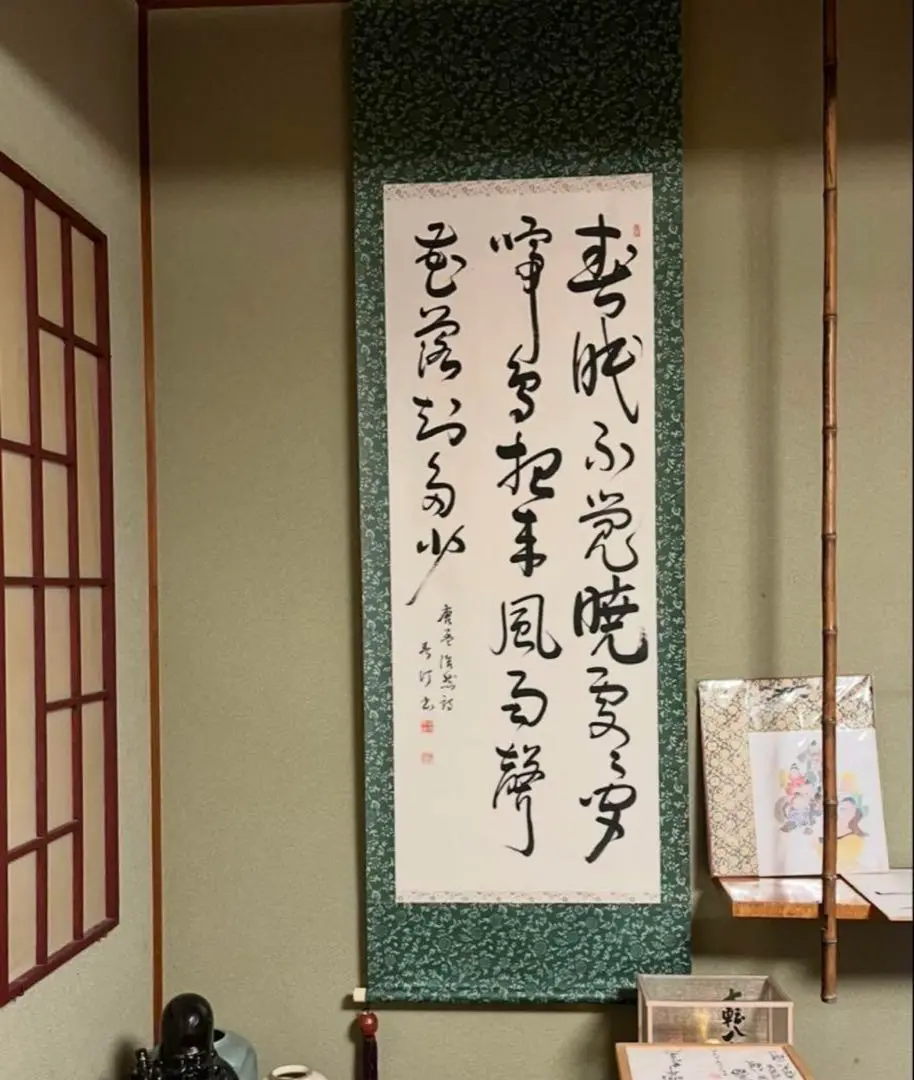 春眠不覺暁處々聞
啼鳥夜来風雨聲
花落知多少
唐孟浩然詩
書
七転八